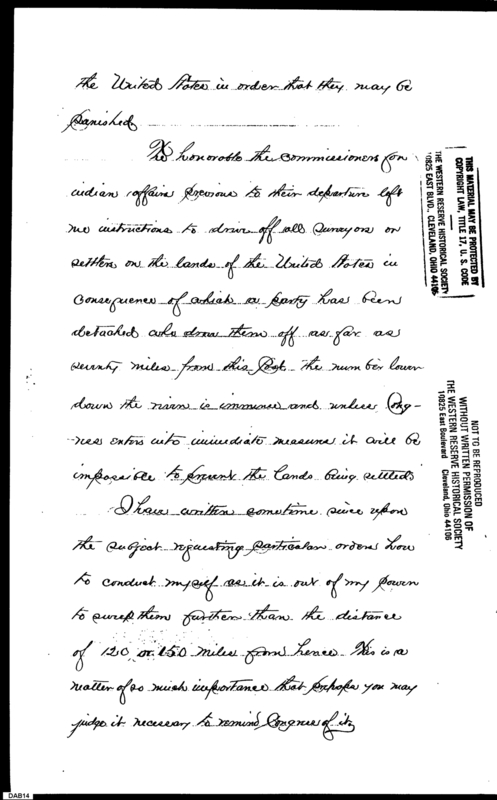 the United States in order that they may be
punished
The honorable the commissioners for
indian affairs previous to their departure left
me instructions to drive off all surveyors or
settlers on the lands of the United States in
consequence of which a party has been
detached who drove them off as far as
seventy miles from this Post. The number lower
down the river is immense and unless Cong-
ress enters into immediate measures it will be
impossible to prevent the lands being settled
I have written sometime since upon
the subject requesting particular orders how
to conduct myself as it is out of my power
to sweep them further than the distance
of 120 or 150 miles from hence. This is a
matter of so much importance that perhaps you may
judge it necessary to remind Congress of it
THIS MATERIAL MAY BE PROTECTED BY
COPYRIGHT LAW, TITLE 17, U. S. CODE
THE WESTERN RESERVE HISTORICAL SOCIETY
10825 EAST BLVD., CLEVELAND, OHIO 44106
NOT TO BE REPRODUCED
WITHOUT WRITTEN PERMISSION OF
THE WESTERN RESERVE HISTORICAL SOCIETY
10825 East Boulevard Cleveland, Ohio 44106
DAB14